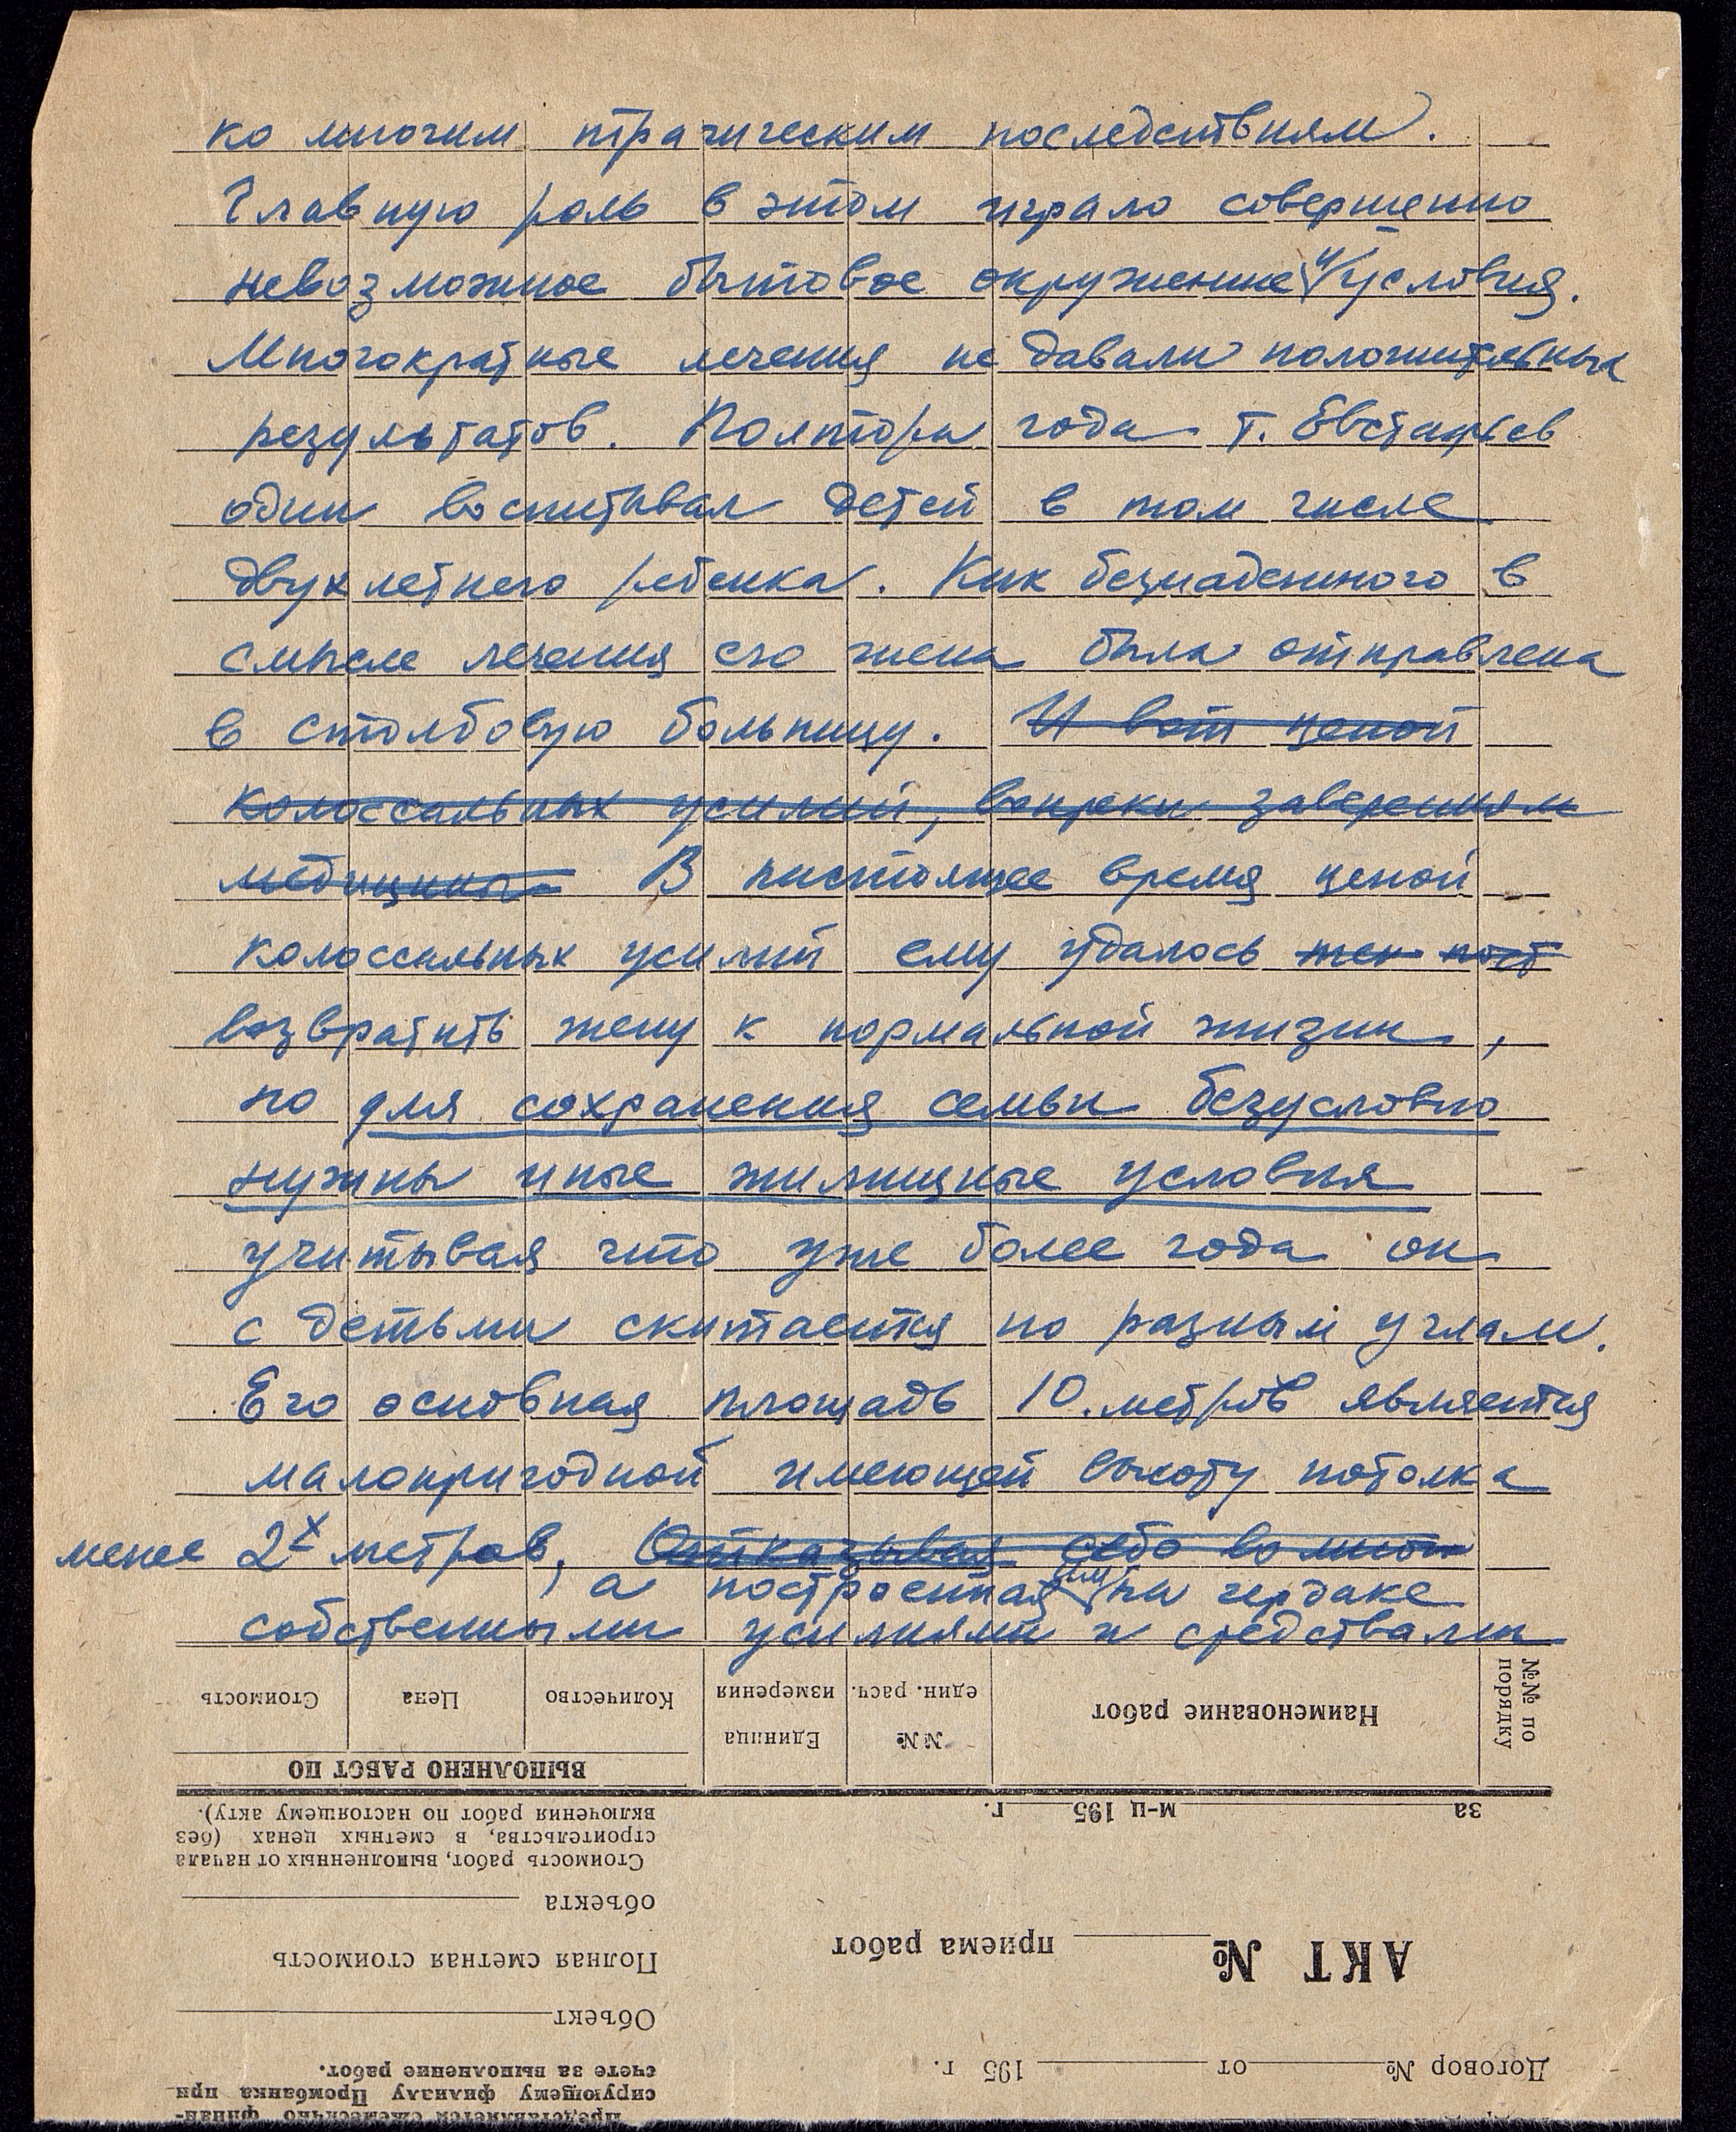 ко многим трагическим последствиям.
Главную роль в этом играло совершенно
невозможное бытовое окружение и условия.
Многократные лечения не давали положительных
результатов. Полтора года т. Евстафьев
один воспитывал детей в том числе
двухлетнего ребенка. Как безнадежного в
смысле лечения его жена была отправлена
в столбовую больницу. И вот ценой
колоссальных усилий, вопреки заверениям
медицины В настоящее время ценой
колоссальных усилий ему удалось жен пост
возвратить жену к нормальной жизни,
но для сохранения семьи безусловно
нужны иные жилищные условия
учитывая что уже более года он
с детьми скитается по разным углам.
Его основная площадь 10 метров является
малопригодной имеющей высоту потолка
менее 2х метров, Отказывая себе во мног
а построенная им на чердаке
собственными усилиями и средствами
№№ по порядку
Наименование работ
№№ един. расч.
Единица измерения
Количество
Цена
Стоимость
ВЫПОЛНЕНО РАБОТ ПО
за м-ц 195 г.
Стоимость работ, выполненных от начала
строительства, в сметных ценах (без
включения работ по настоящему акту).
объекта
Полная сметная стоимость
Объект
АКТ № приема работ
Договор № от 195 г.
Представляется ежемесячно финан-
сирующему филиалу Промбанка при
счете за выполнение работ.